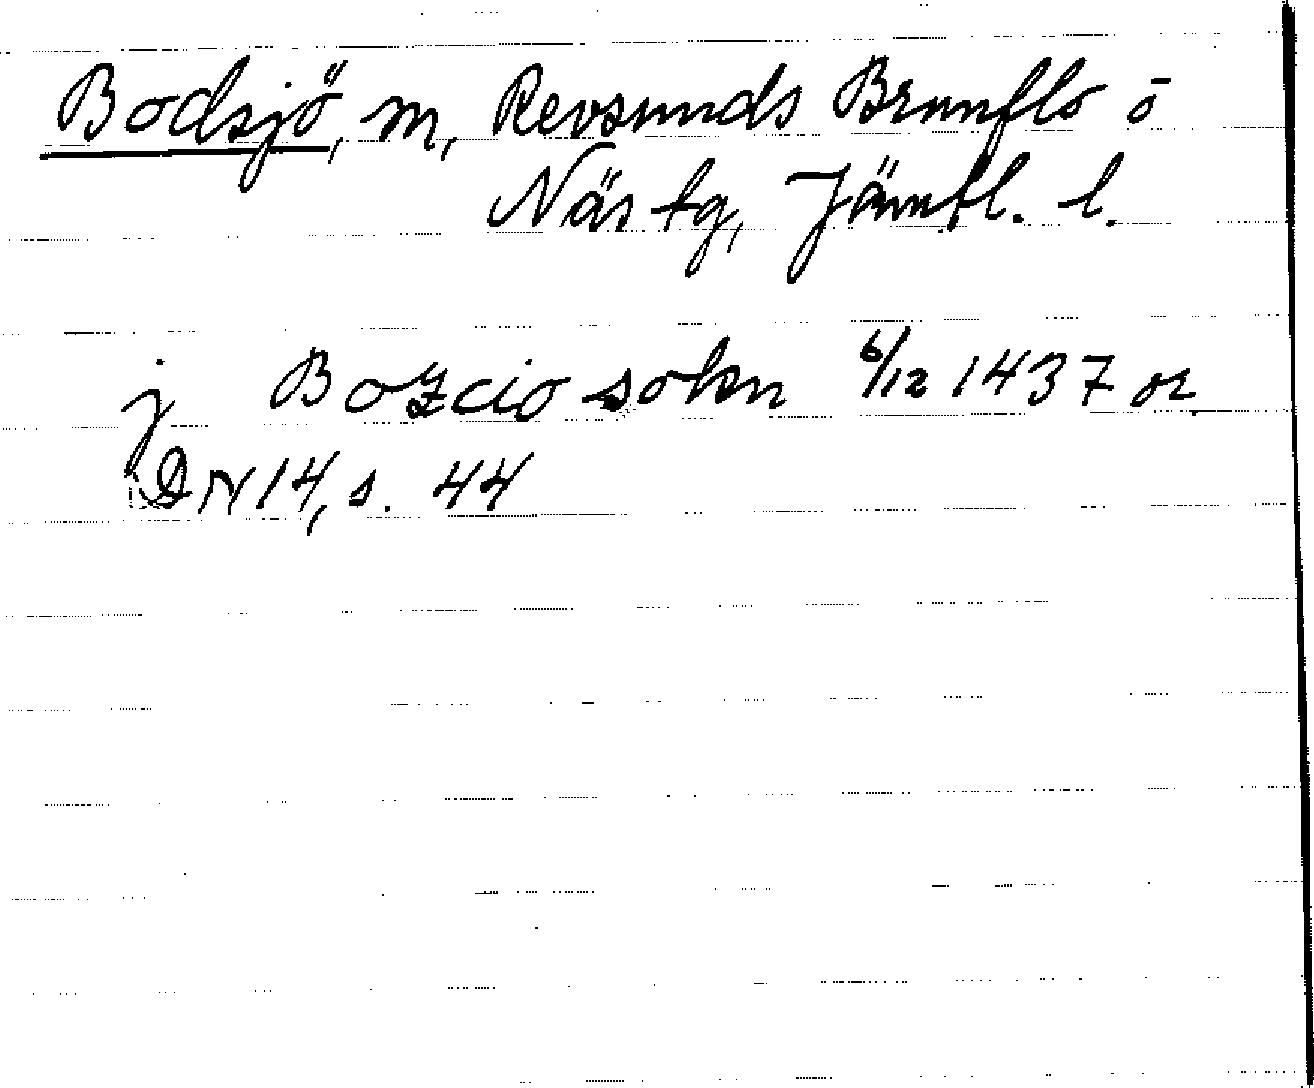 Bodsjö, m, Revsunds Brunflo o
Näs tg, Jämtl. l.
j Bozcio sokn 6/12 1437 or
DN 14, s. 44